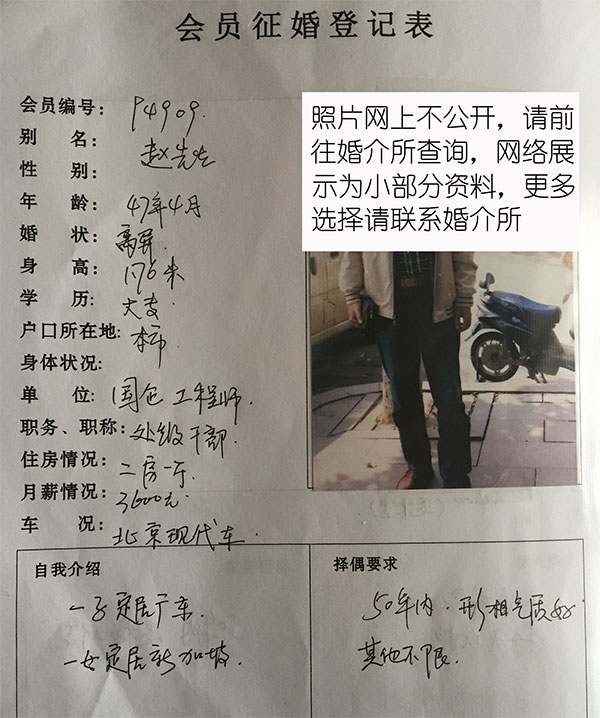 会员征婚登记表
会员编号: P4909.
别 名: 赵先生
性 别:
年 龄: 47年4月
婚 状: 离异
身 高: 1.76米
学 历: 大专.
户口所在地: 本市.
身体状况:
单 位: 国企 工程师.
职务、职称: 处级干部.
住房情况: 二房一厅.
月薪情况: 3600元.
车 况: 北京现代车.
照片网上不公开，请前
往婚介所查询，网络展
示为小部分资料，更多
选择请联系婚介所
自我介绍
一子定居广东.
一女定居新加坡.
择偶要求
50年内. 形相气质好
其他不限.